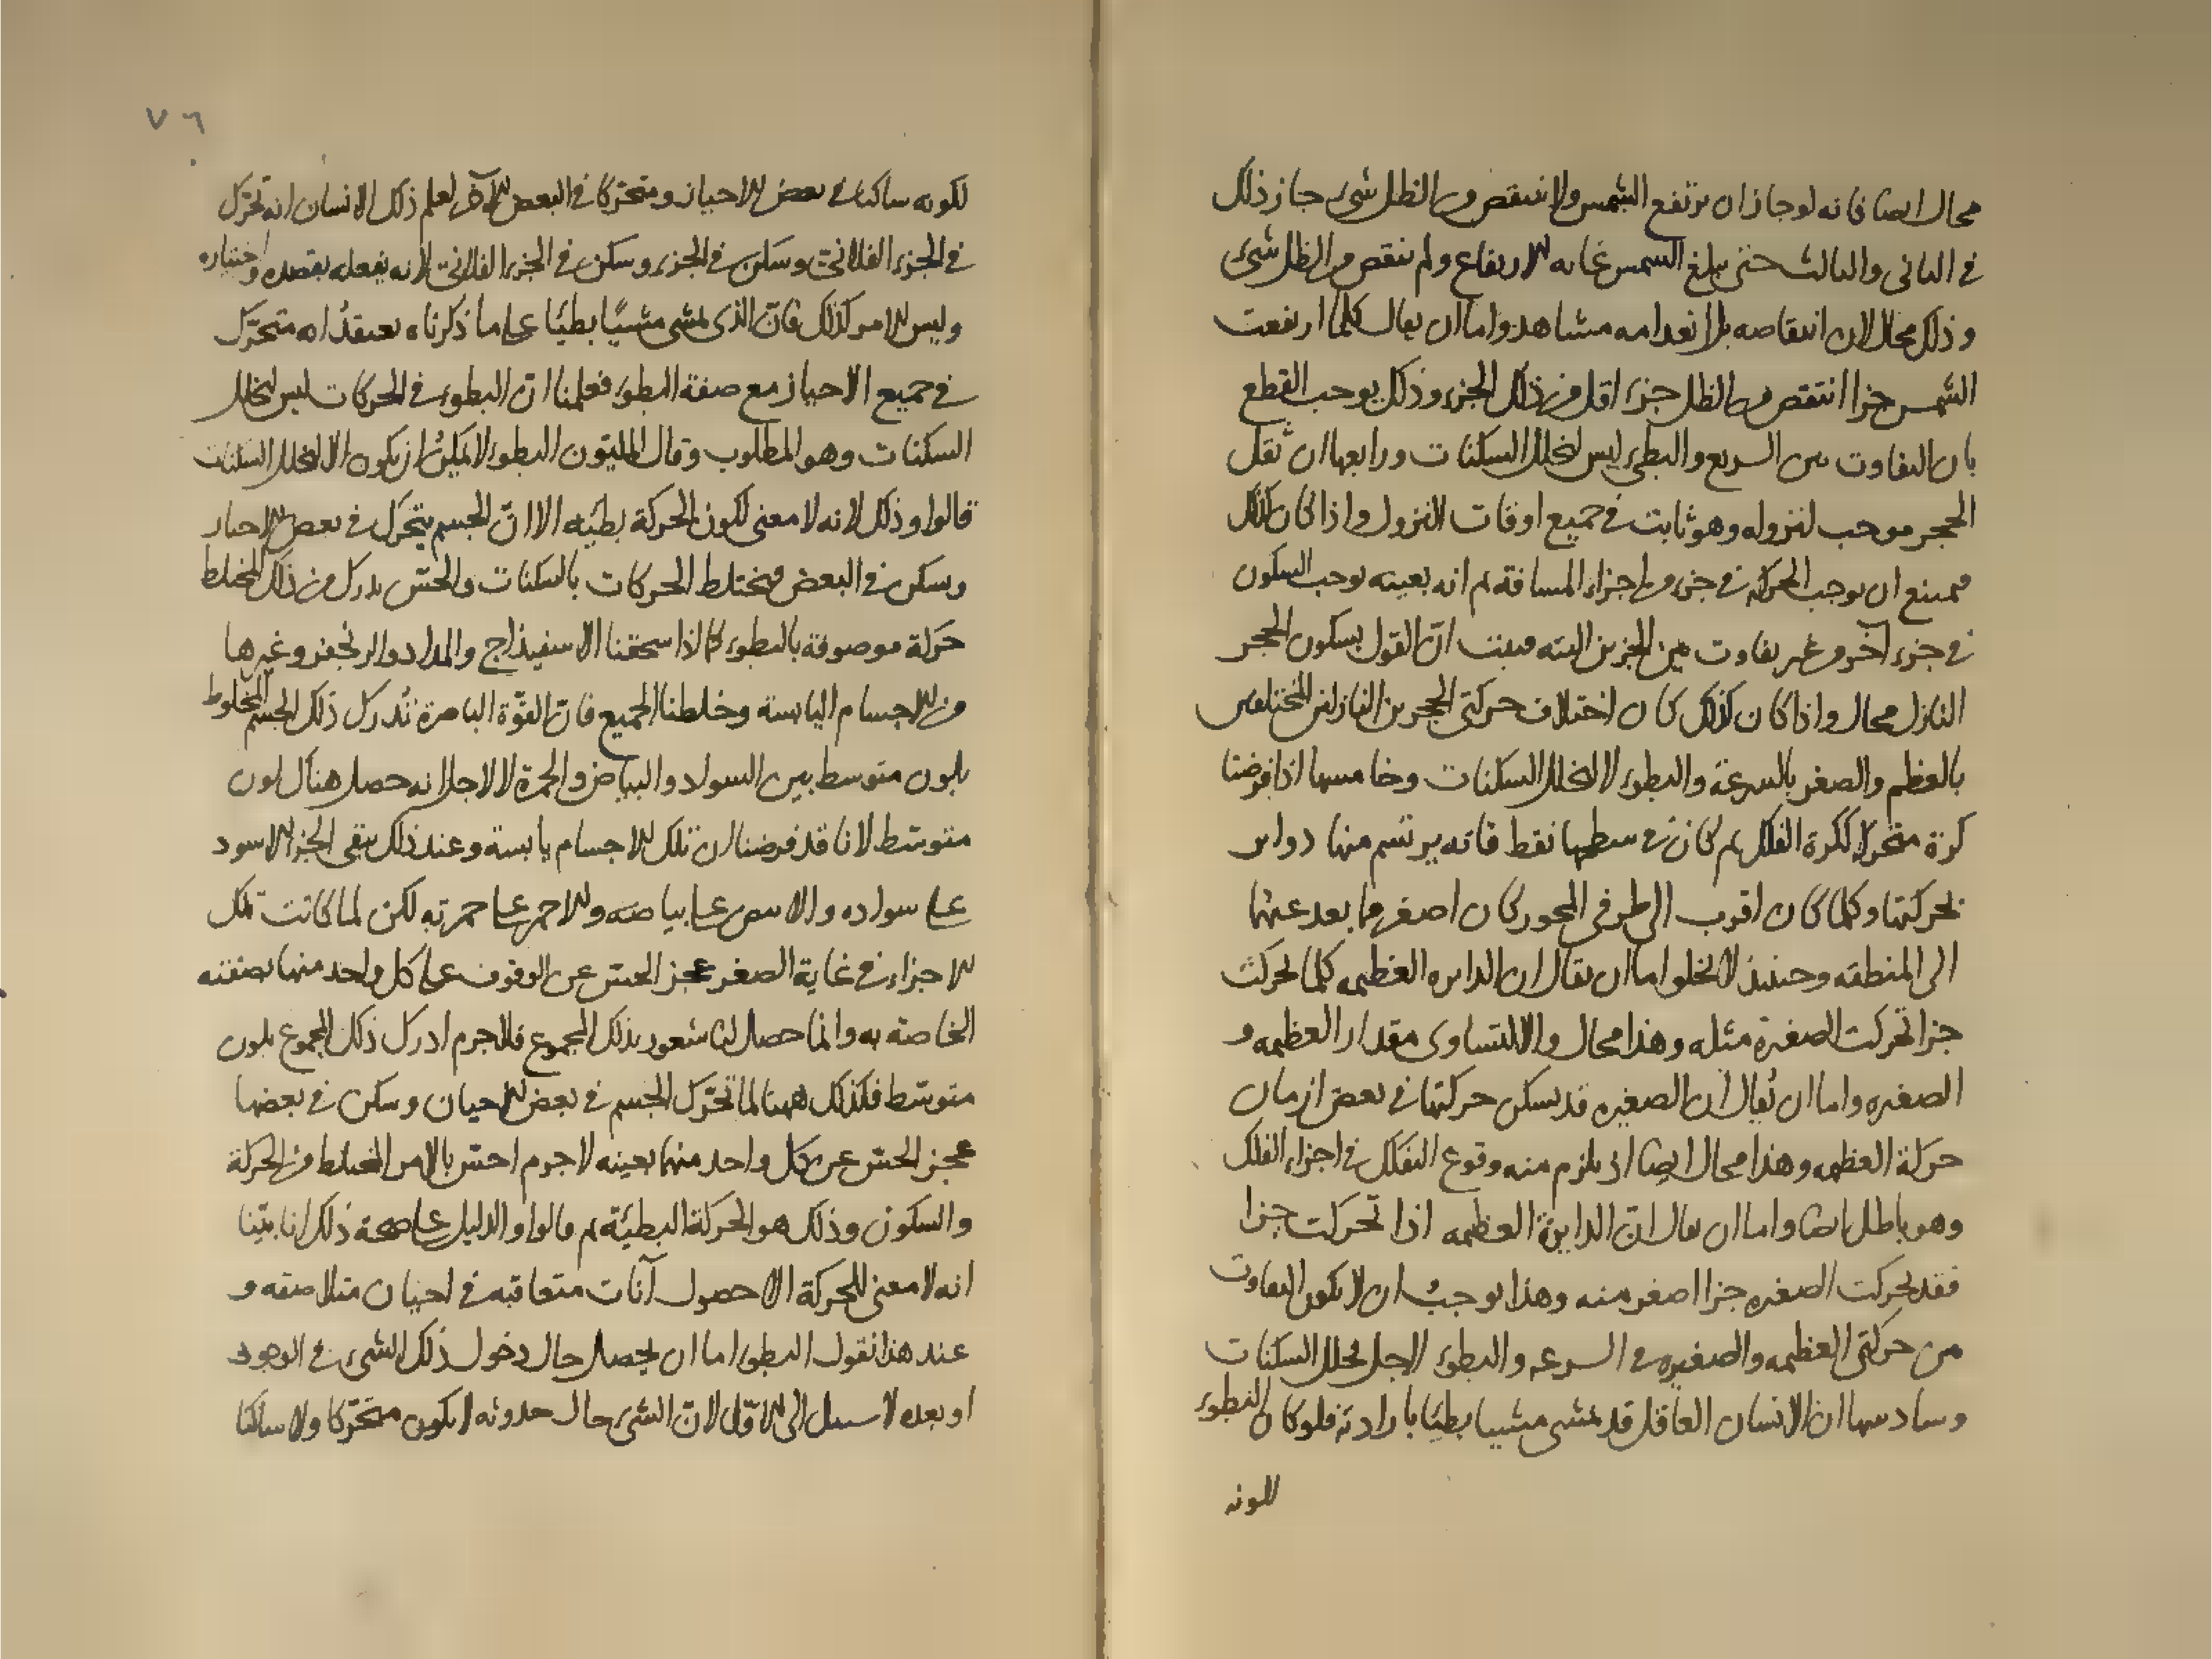 محال ايضا فانه لو جاز ان يرتفع الشمس ولا ينتقص من الظل شيء جاز ذلك
في الثاني والثالث حتى يبلغ الشمس غاية الارتفاع ولم ينقص من الظل شيء
وذلك محال لان انتقاصه بل انعدامه مشاهد واما ان يقال كلما ارتفعت
الشمس جزا انتقص من الظل جزء اقل من ذلك الجزء وذلك يوجب القطع
بان التفاوت بين السريع والبطيء ليس لتخلل السكنات ورابعها ان ثقل
الحجر موجب لنزوله وهو ثابت في جميع اوقات النزول واذا كان كذلك
فممتنع ان يوجب الحركة في جزء من اجزاء المسافة ثم انه بعينه يوجب السكون
في جزء آخر من غير تفاوت بين الجزين البته فثبت ان القول بسكون الحجر
النازل محال واذا كان كذلك كان اختلاف حركتي الحجرين النازلين المختلفين
بالعظم والصغر بالسرعة والبطوء لا لتخلل السكنات وخامسها اذا فرضنا
كرة متحركة ككرة الفلك ثم كان في سطحها نقط فانه يرتسم منها دواير
بحركتها وكلما كان اقرب الى طرفي المحور كان اصغر مما بعد عنهما
الى المنطقه وحينئذ لا يخلوا اما ان يقال ان الدايره العظيمه كلما تحركت
جزا تحركت الصغيرة مثله وهذا محال والا لتساوى مقدار العظيمه و
الصغيره واما ان يقال ان الصغيره قد يسكن حركتها في بعض ازمان
حركة العظيمه وهذا محال ايضا اذ يلزم منه وقوع التفكك في اجزاء الفلك
وهو باطل ايضا واما ان يقال ان الدايرة العظيمه اذا تحركت جزا
فقد تحركت الصغيره جزا اصغر منه وهذا يوجب ان لا يكون التفاوت
من حركتي العظيمه والصغيره في السرعه والبطوء لاجل تخلل السكنات
وسادسها ان الانسان العاقل قد يمشي مشيا بطئا بارادته فلو كان البطوء
لكونه
٧٦
لكونه ساكنا في بعض الاحياز ومتحركا في البعض الآخر لعلم ذلك الانسان انه تحرّك
في الجزء الفلاني وسكن في الجزء وسكن في الجزء الفلاني لانه يفعله بقصده واختياره
وليس الامر كذلك فانّ الذى يمشي مشيًا بطئا على ما ذكرناه يعتقد انه متحرّك
في جميع الاحياز مع صفة البطوء فعلمنا انّ البطوء في الحركات ليس لتخلل
السكنات وهو المطلوب وقال المليّون البطوء لا يمكن ان يكون الا لتخلل السكنات
قالوا وذلك لانه لا معنى لكون الحركة بطئه الا انّ الجسم يتحرّك في بعض الاحياز
ويسكن في البعض فيختلط الحركات بالسكنات والحسّ يدرك من ذلك المختلط
حركة موصوفة بالبطوء كما اذا سحقنا الاسفيذاج والمداد والزنجفر وغيرها
من الاجسام اليابسة وخلطنا الجميع فانّ القوّة الباصرة تُدرك ذلك الجسم المخلوط
بلون متوسط بين السواد والبياض والحمرة لا لاجل انه حصل هناك لون
متوسّط لانا قد فرضنا ان تلك الاجسام يابسة وعند ذلك يبقى الجزء الاسود
على سواده والابيض على بياضه والاحمر على حمرته لكن لما كانت تلك
الاجزاء في غاية الصغر عجز الحسّ عن الوقوف على كل واحد منها بصفته
الخاصة به وانما حصل لنا شعور بذلك المجموع فلاجرم ادرك ذلك المجموع بلون
متوسّط فكذلك ههنا لما تحرّك الجسم في بعض الاحيان وسكن في بعضها
عجز الحسّ عن كل واحد منهما بعينه لاجرم احسّ بالامر المختلط من الحركة
والسكون وذلك هو الحركة البطيئة ثم قالوا والدليل على صحة ذلك انا بيّنا
انه لا معنى للحركة الا حصول آنات متعاقبه في احيان متلاصقه و
عند هذا نقول البطوء اما ان يحصل حال دخول ذلك الشيء في الوجود
او بعده لا سبيل الى الاوّل لانّ الشيء حال حدوثه لا يكون متحرّكا ولا ساكنا